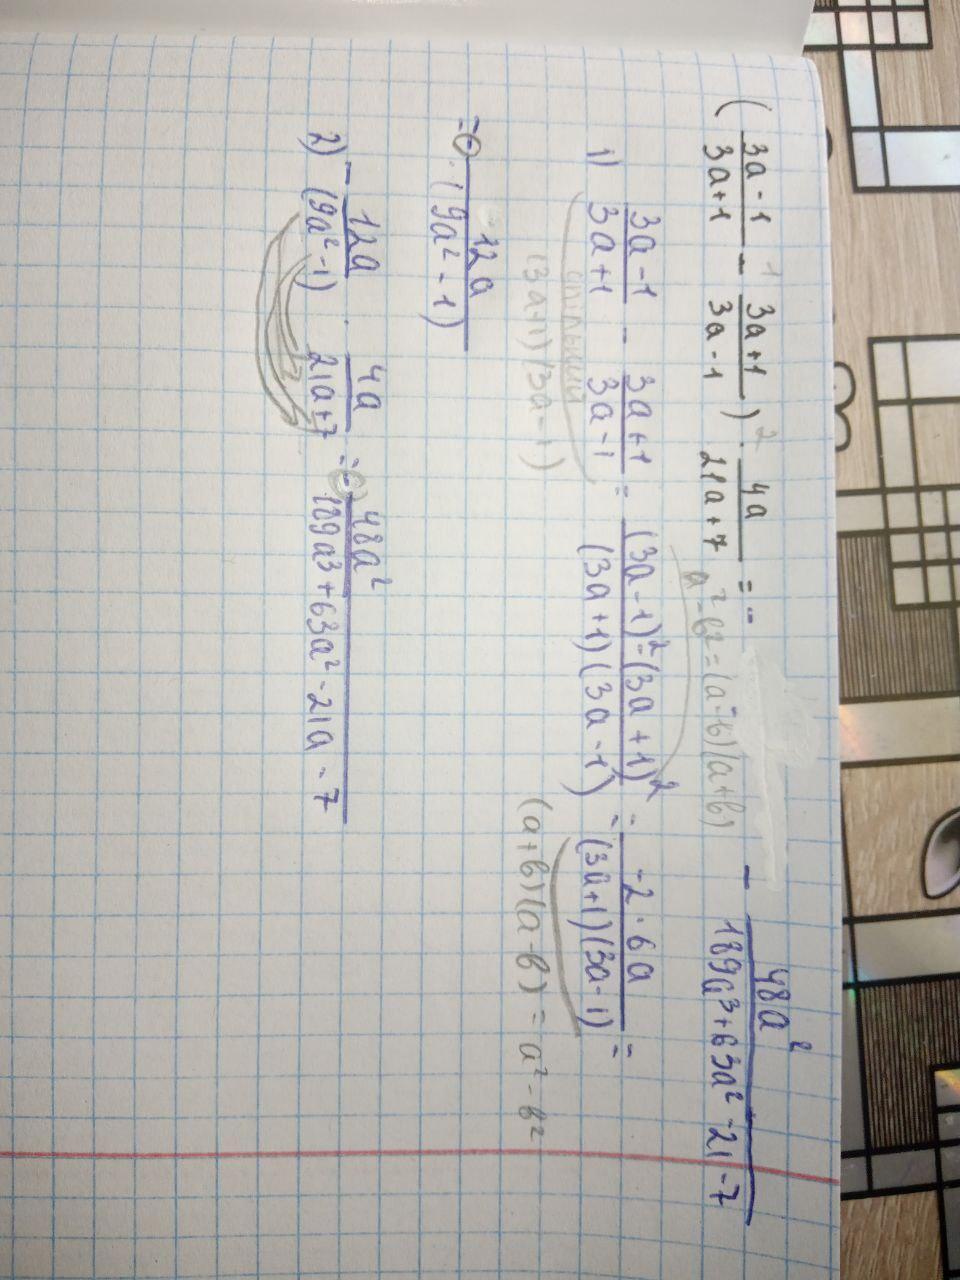 (3a-1/3a+1 - 3a+1/3a-1) · 4a/21a+7 = - 48a²/189a³+63a²-21-7
1 2
a²-b²=(a-b)(a+b)
1) 3a-1/3a+1 - 3a+1/3a-1 = (3a-1)²-(3a+1)²/(3a+1)(3a-1) = -2·6a/(3a+1)(3a-1) =
(3a+1)(3a-1)
(a+b)(a-b) = a²-b²
=- 12a/(9a²-1)
2) - 12a/(9a²-1) · 4a/21a+7 = - 48a²/189a³+63a²-21a-7